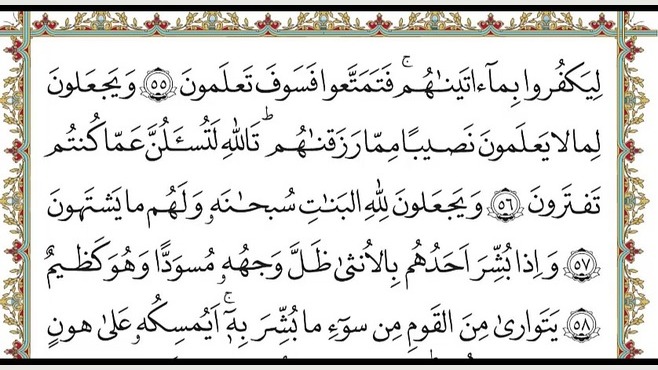 لِيَكفُروا بِمآ ءاتَينٰهُم ۚ فَتَمَتَّعوا فَسَوفَ تَعلَمونَ ﴿٥٥﴾ وَ يَجعَلونَ
لِما لا يَعلَمونَ نَصيبًا مِمّا رَزَقنٰهُم ۗ تَاللهِ لَتُسـَٔلُنَّ عَمّا كُنتُم
تَفتَرونَ ﴿٥٦﴾ وَ يَجعَلونَ لِلّٰهِ البَناتِ سُبحٰنَه‍ۥ وَ لَهُم ما يَشتَهونَ
﴿٥٧﴾ وَ اِذا بُشِّرَ اَحَدُهُم بِالاُنثىٰ ظَلَّ وَجهُه‍ۥ مُسوَدًّا وَ هُوَ كَظيمٌ
﴿٥٨﴾ يَتَوارىٰ مِنَ القَومِ مِن سوٓءِ ما بُشِّرَ بِه‍ۦٓ ۚ اَيُمسِكُه‍ۥ عَلىٰ هونٍ